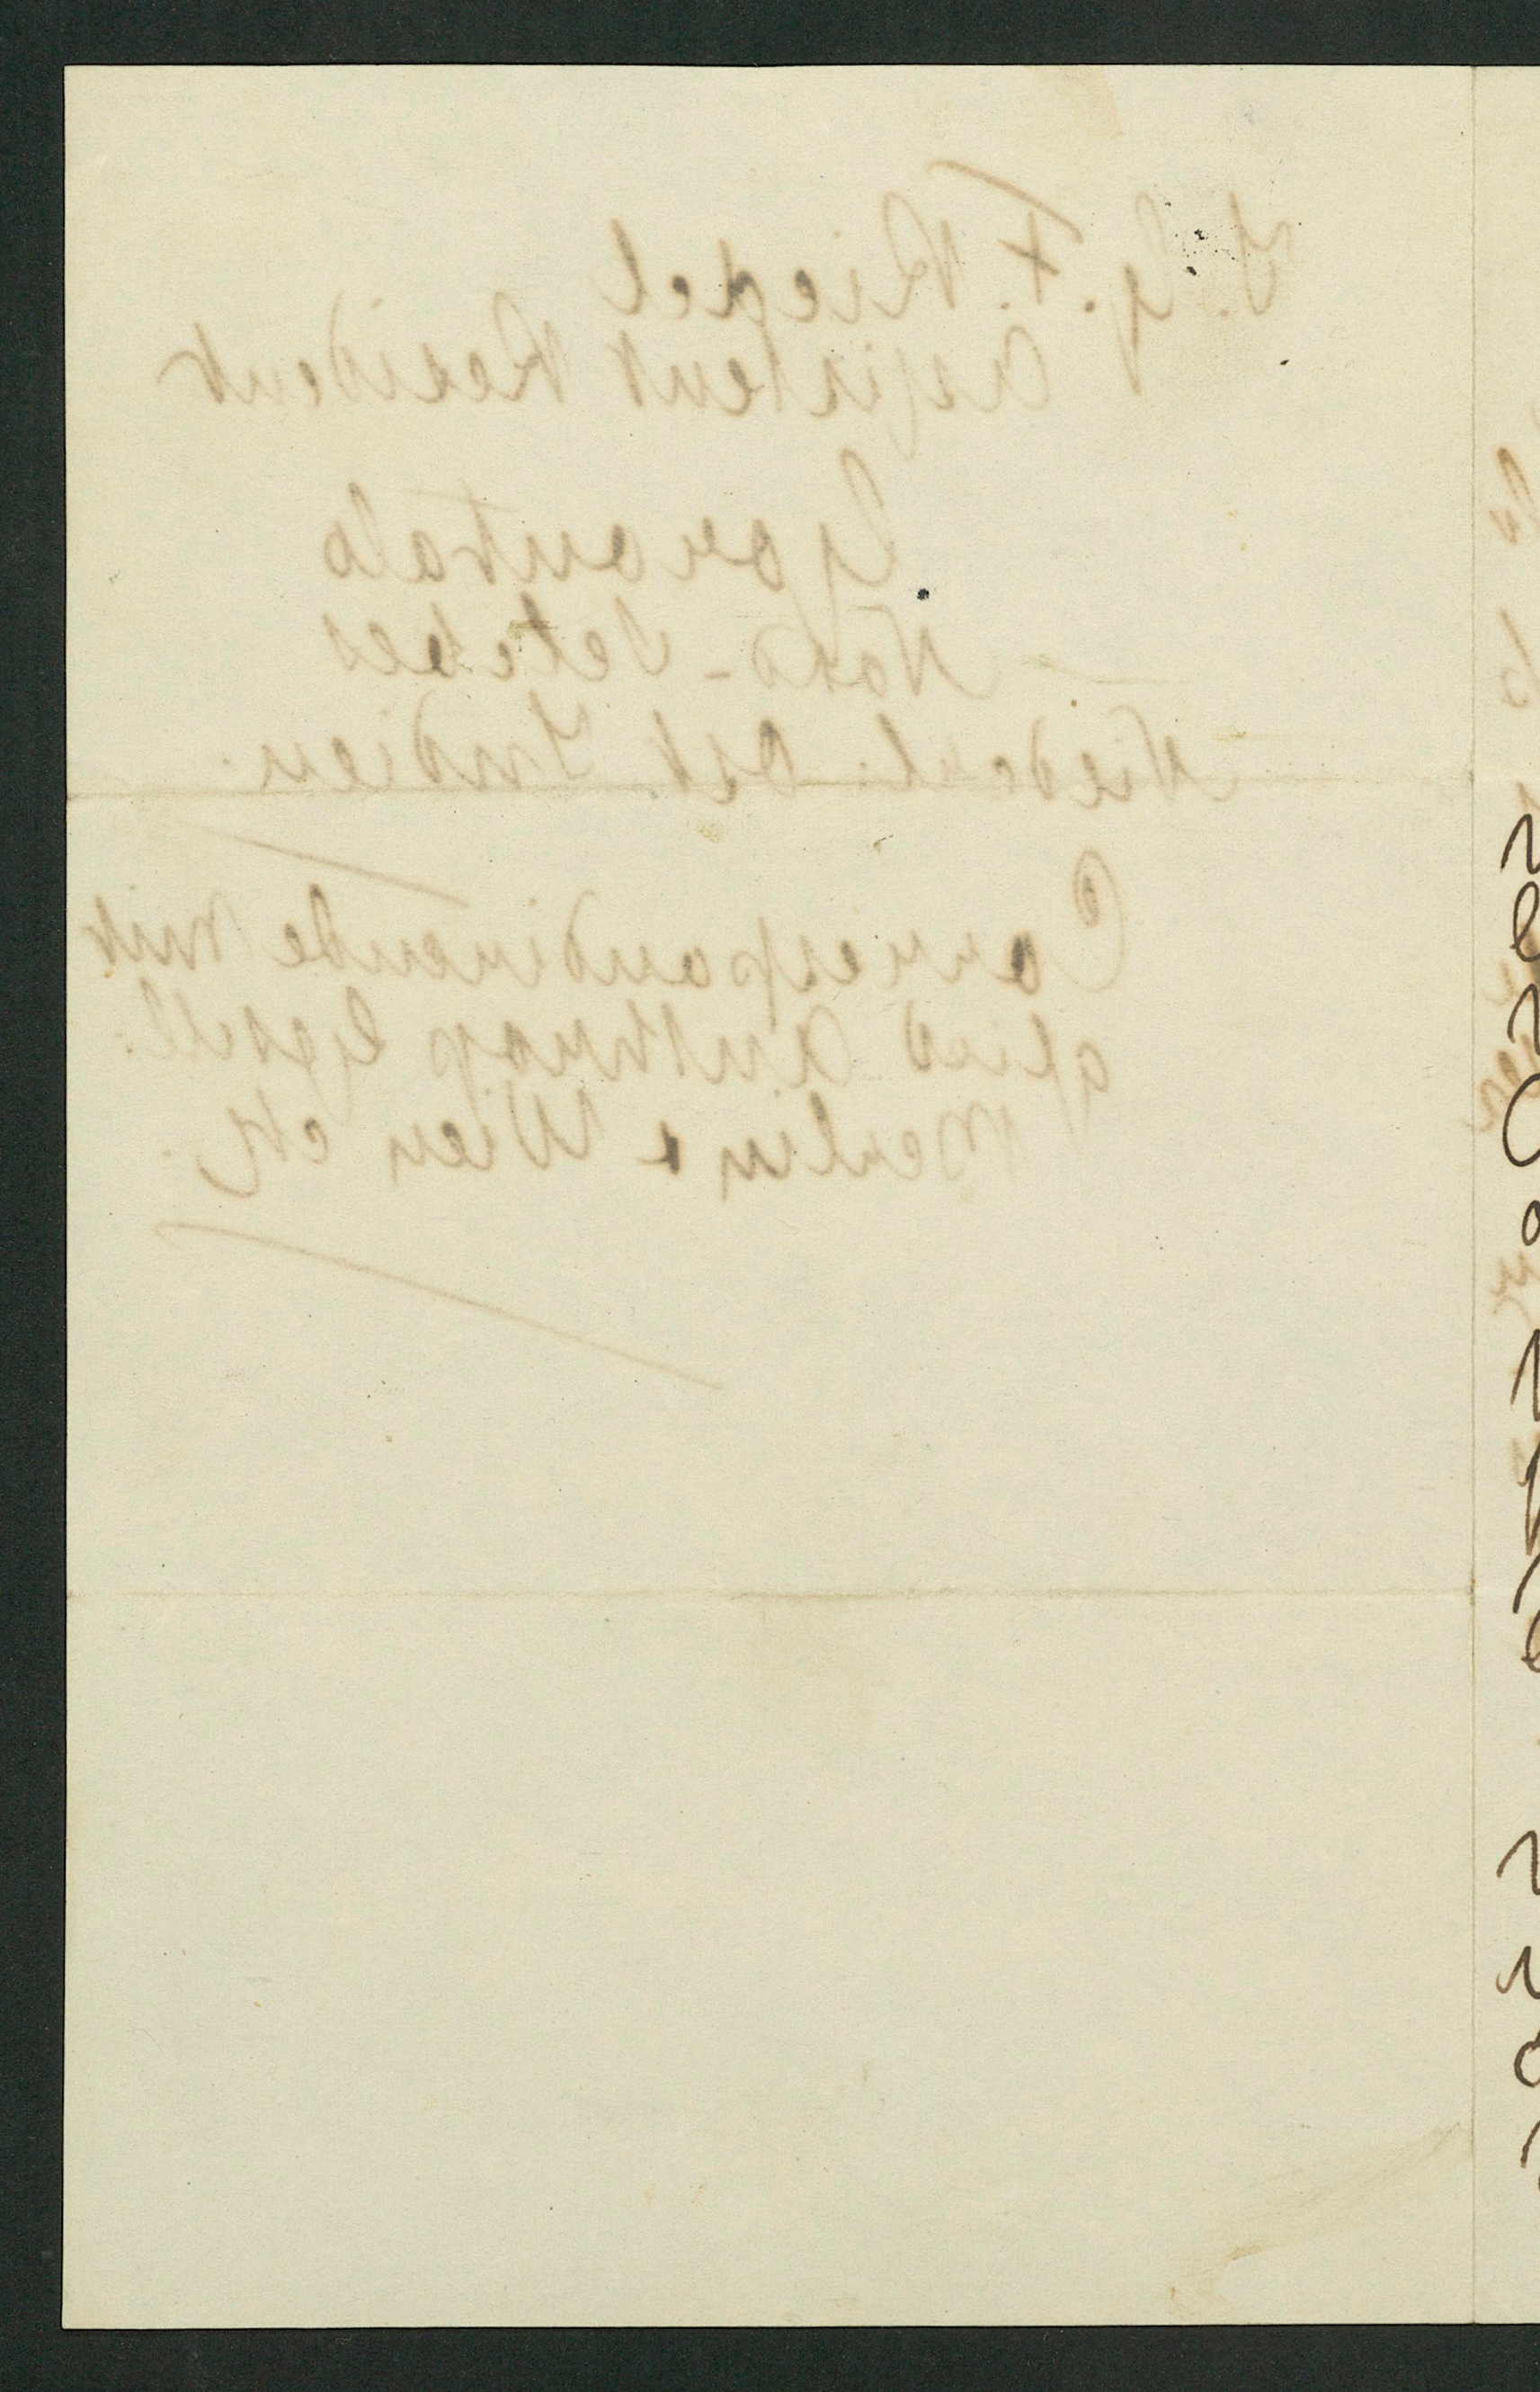 J. G. F. Riedel
Assistent Resident
Gorontalo
Nord-Selebes
Niederl. Ost Indien.
Correspondirende Mit
glied Anthrop Gesell.
Berlin & Wien etc.